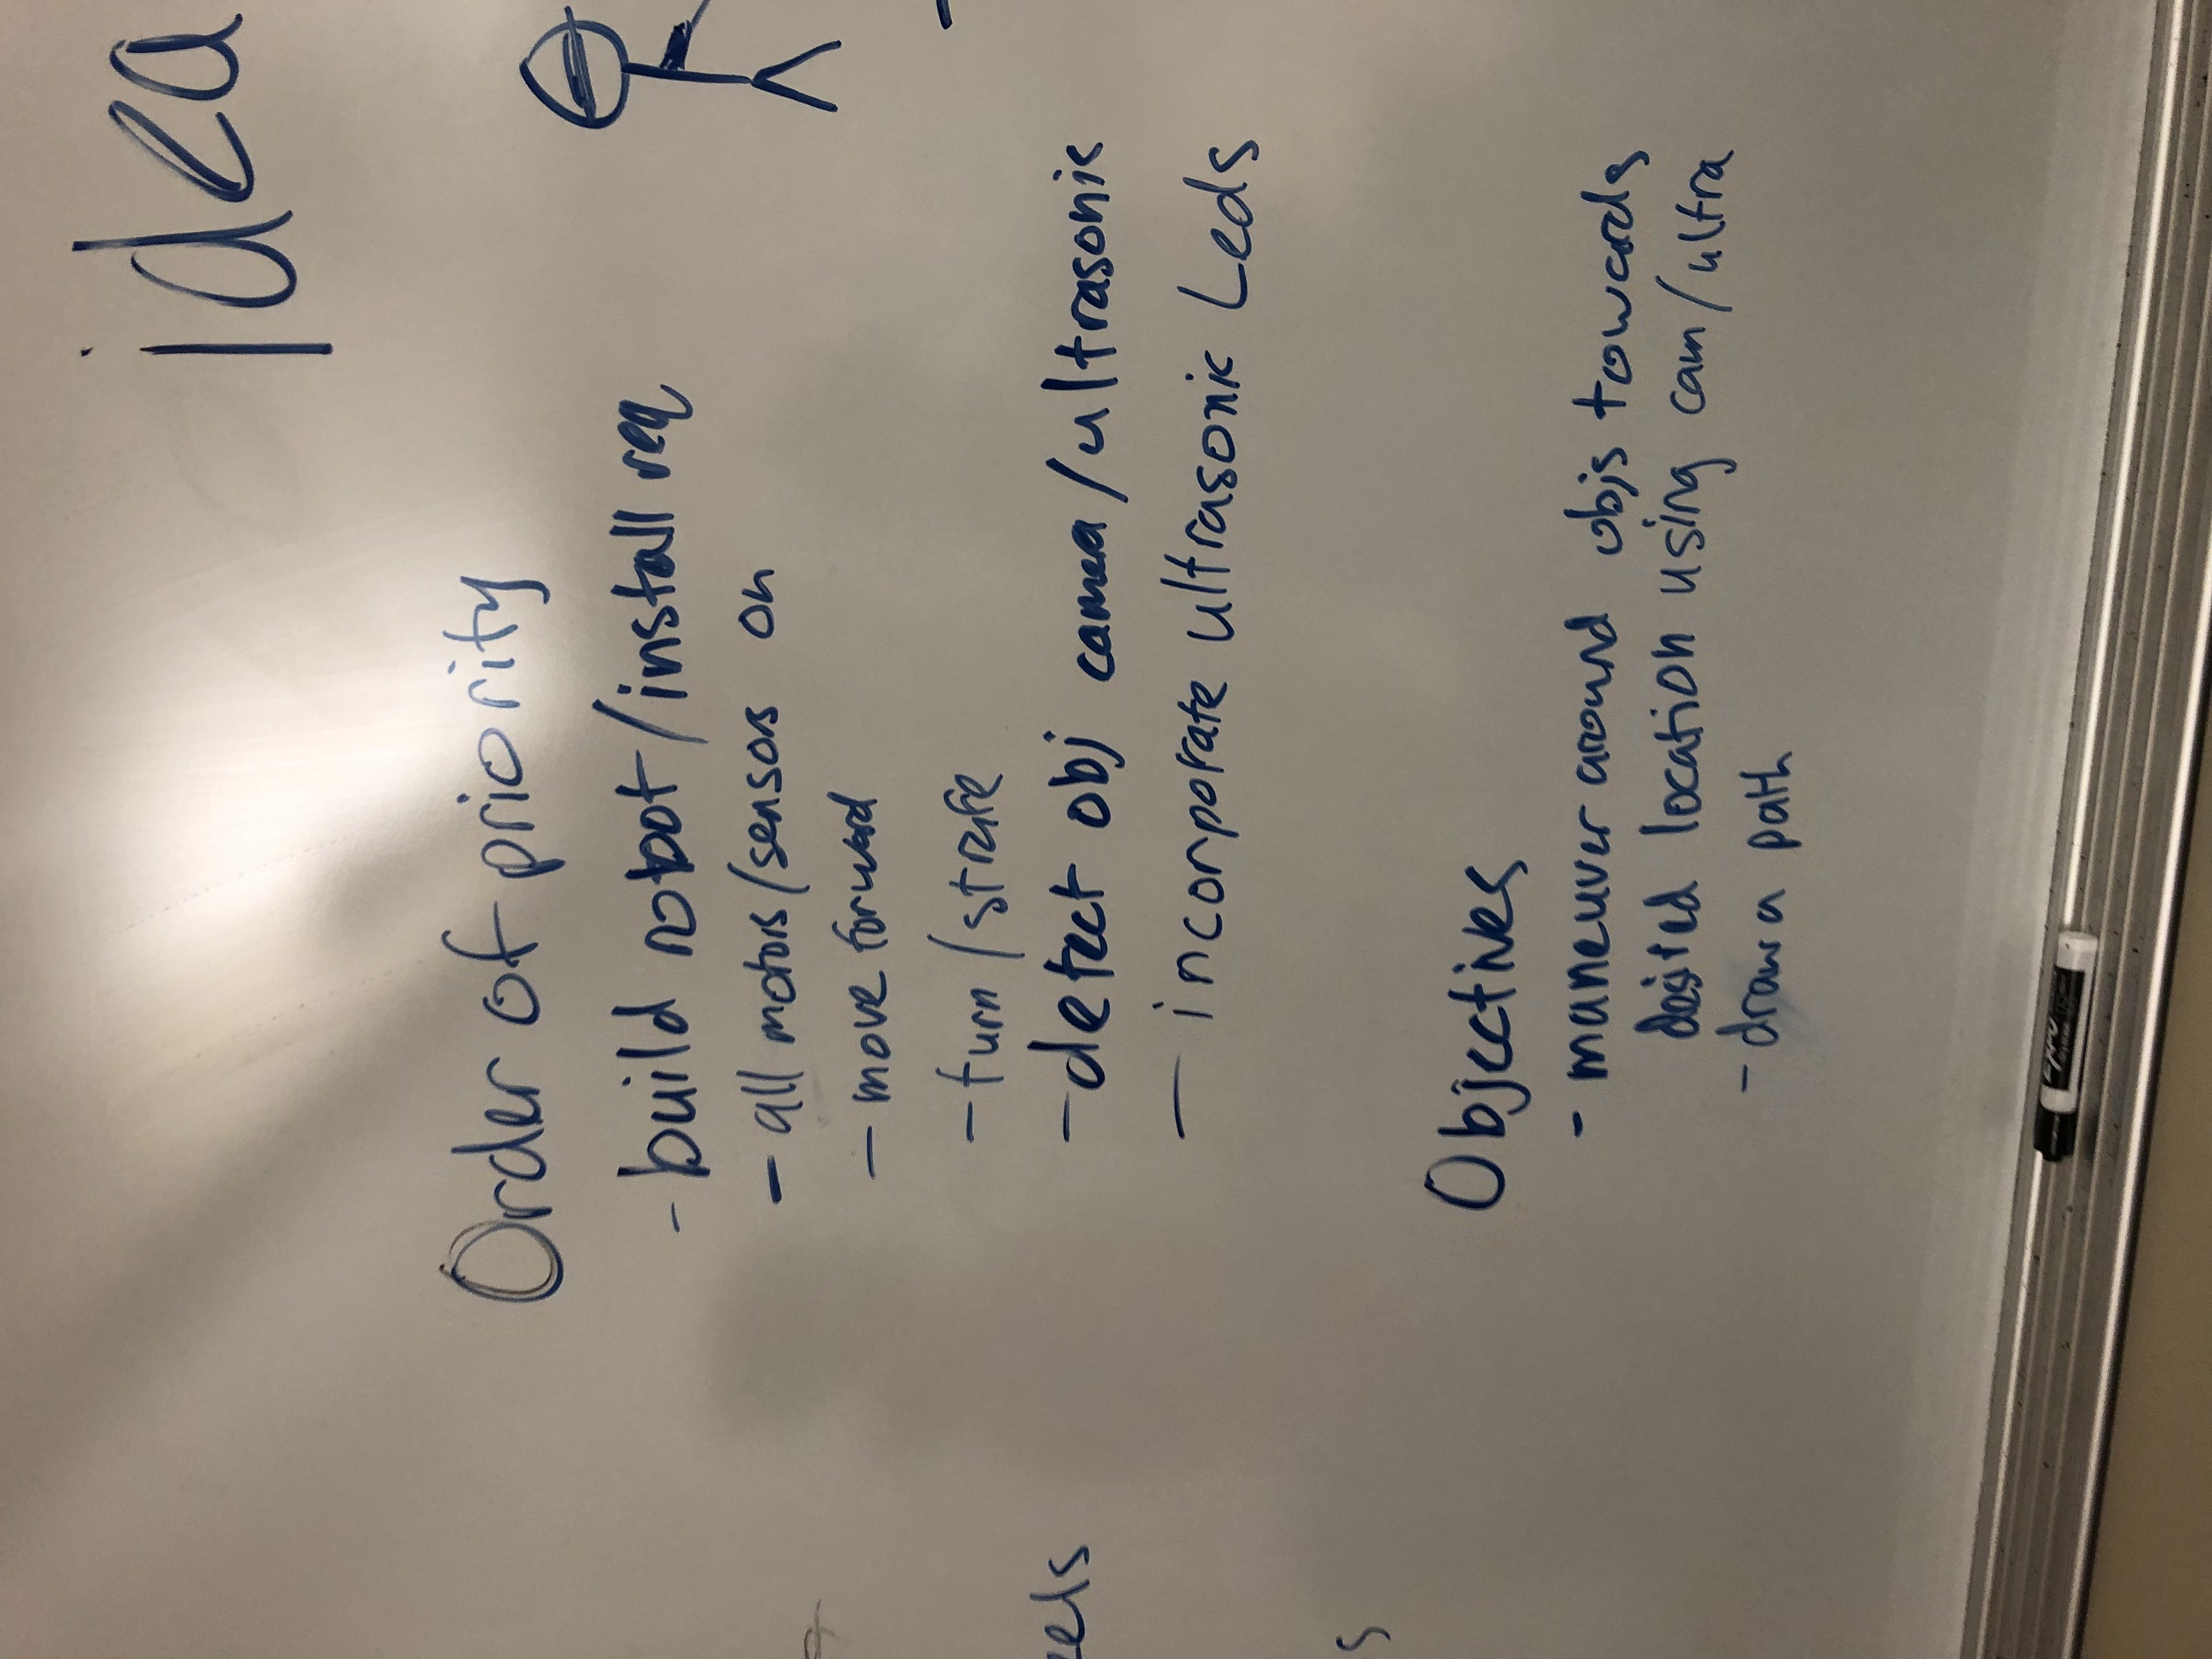 idea
Order of priority
- build robot/install req
- all motors/sensors on
- move forward
- turn/strafe
- detect obj camera/ultrasonic
- incorporate ultrasonic Leds
Objectives
- maneuver around objs towards
desired location using cam/ultra
- draw a path
EXPO